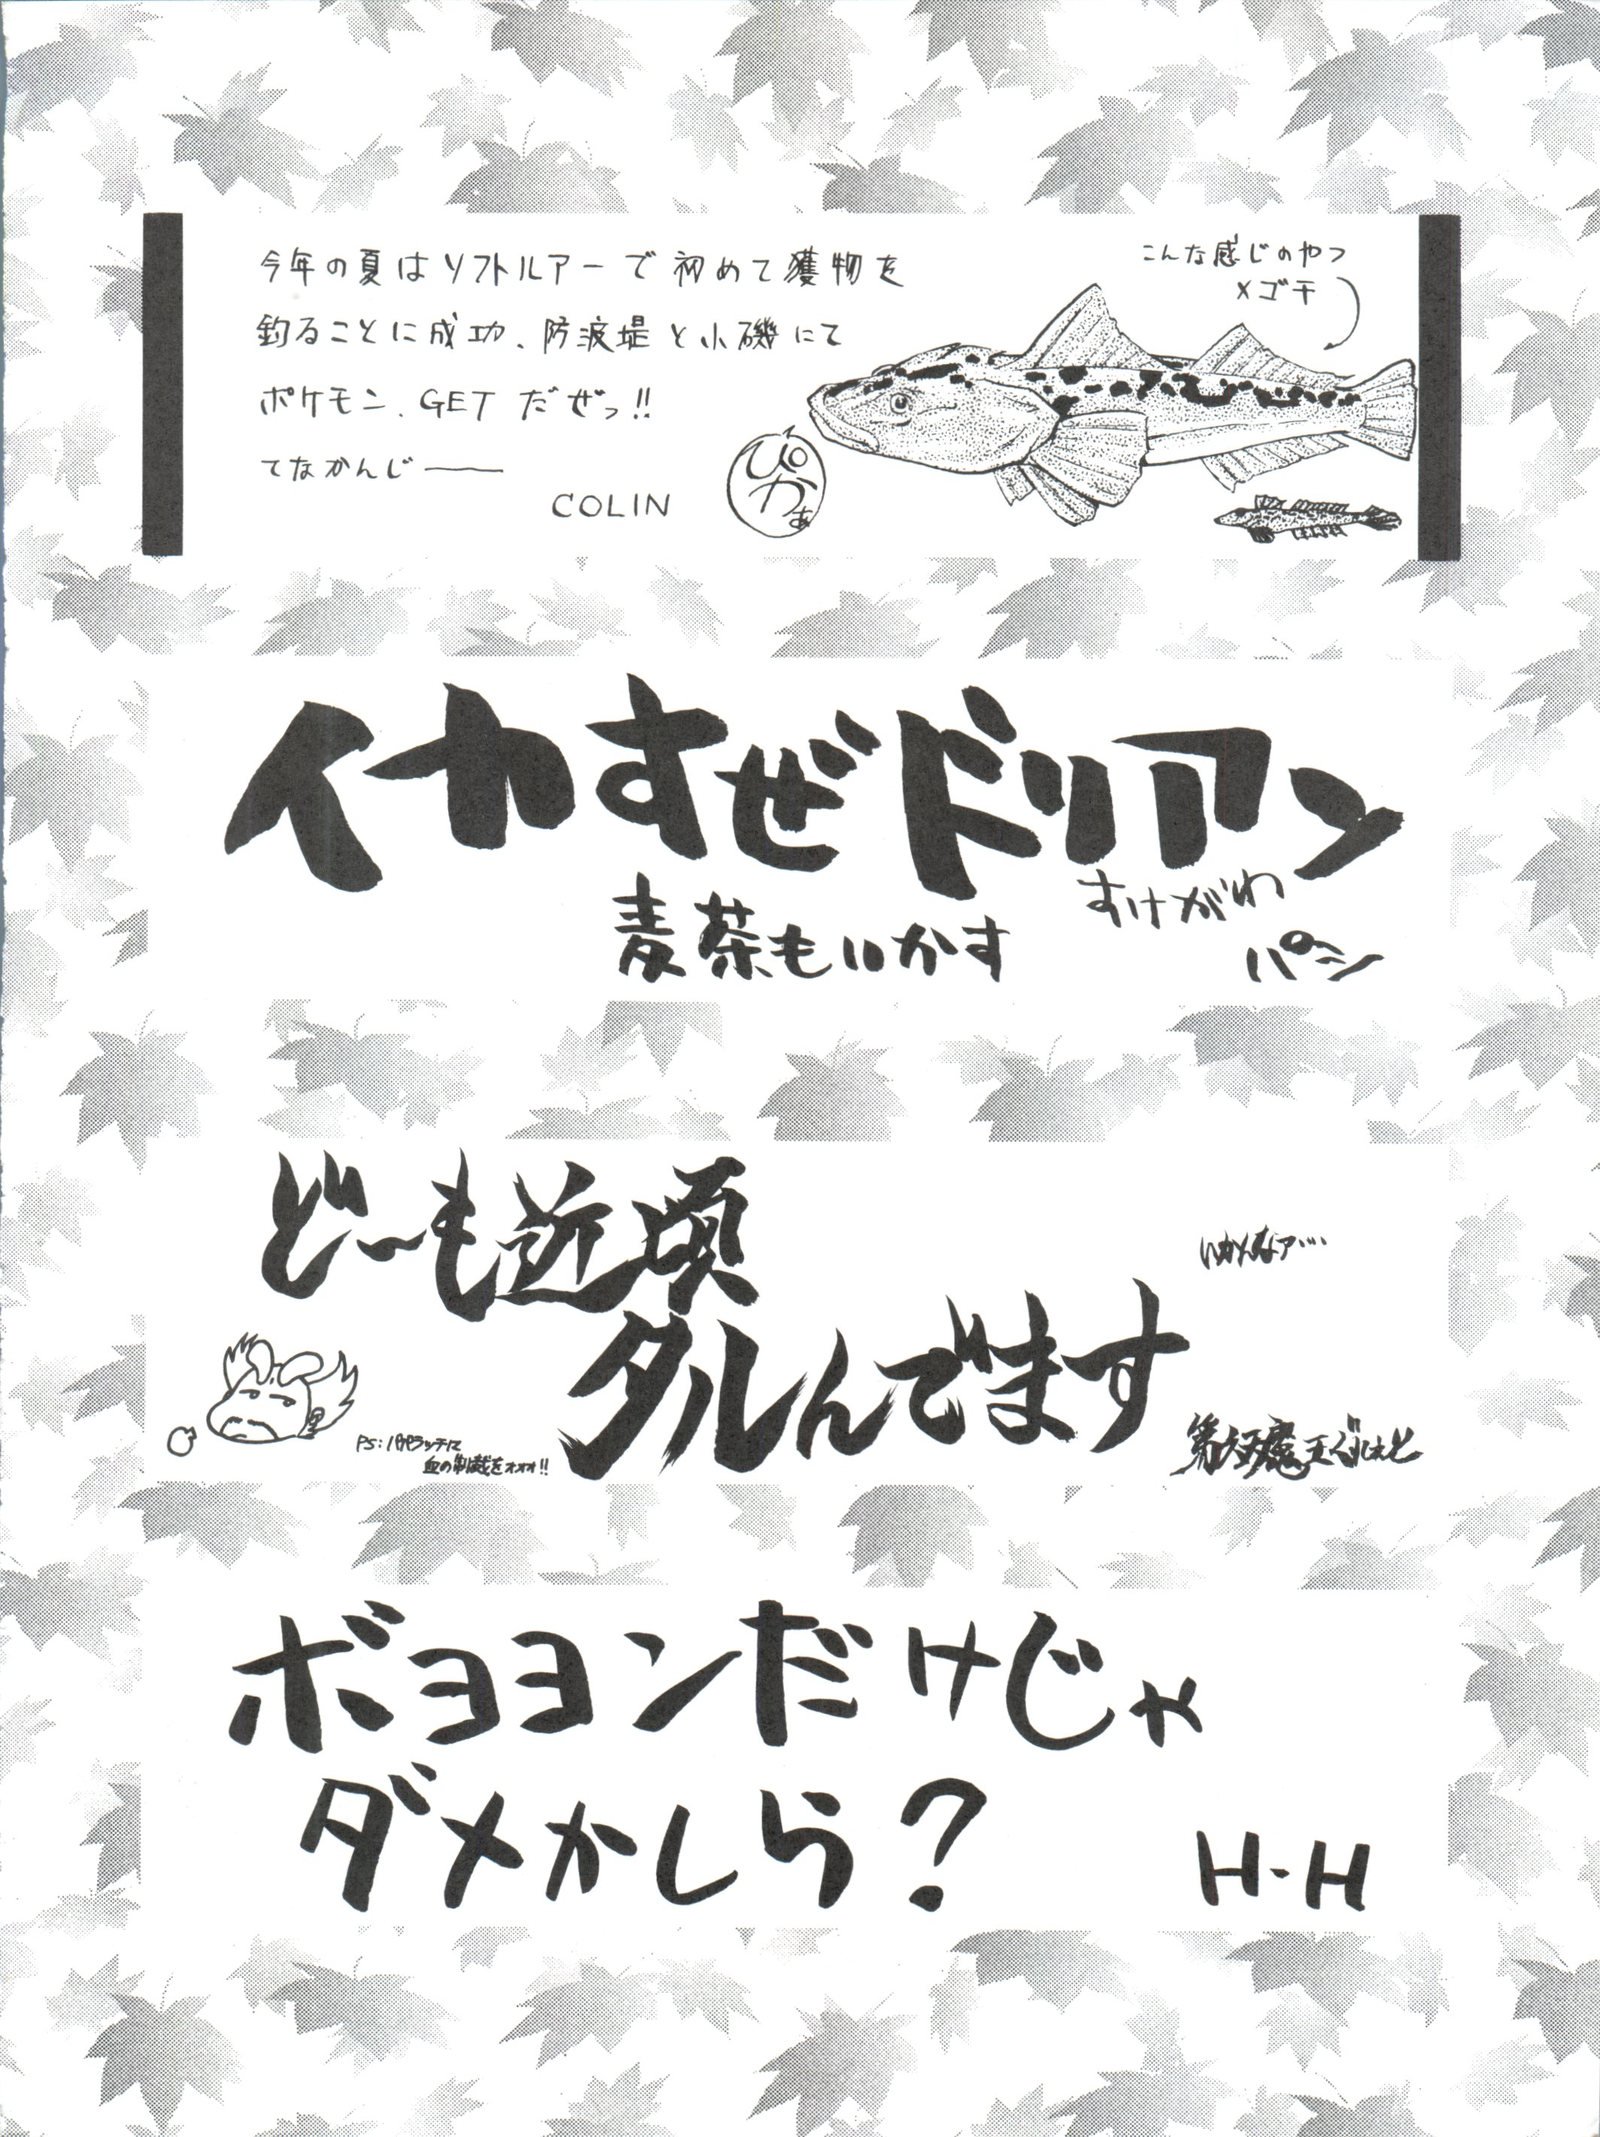 今年の夏はソフトルアーで初めて獲物を
釣ることに成功、防波堤と小磯にて
ポケモン、GETだぜっ!!
てなかんじ——
COLIN
ぴかぁ
こんな感じのやつ
メゴチ
イカすぜドリアン
麦茶もいかす
すけがわ
パン
どーも近頃
ダルんでます
いかんなァ…
PS:パパラッチに
血の制裁をォォォ!!
第六天魔王ぐれえと
ボヨヨンだけじゃ
ダメかしら?
H-H